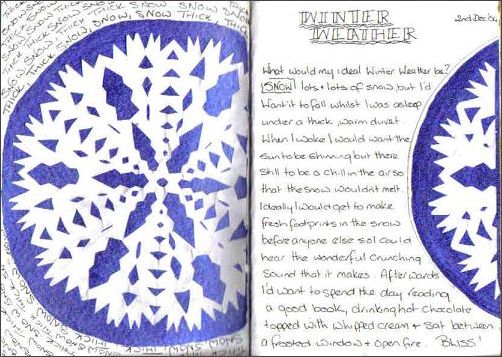 THICK SNOW, THICK SNOW, THICK SNOW
WINTER
WEATHER
2nd Dec
What would my ideal Winter Weather be?
SNOW lots + lots of snow, but I'd
want it to fall whilst I was asleep
under a thick, warm duvet.
When I woke I would want the
sun to be shinning but there
still to be a chill in the air so
that the snow wouldnt melt.
Ideally I would get to make
fresh footprints in the snow
before anyone else so I could
hear the wonderful crunching
Sound that it makes. Afterwards
I'd want to spend the day reading
a good book, drinking hot chocolate
topped with whipped cream + sat between
a frosted window + open fire. BLISS!